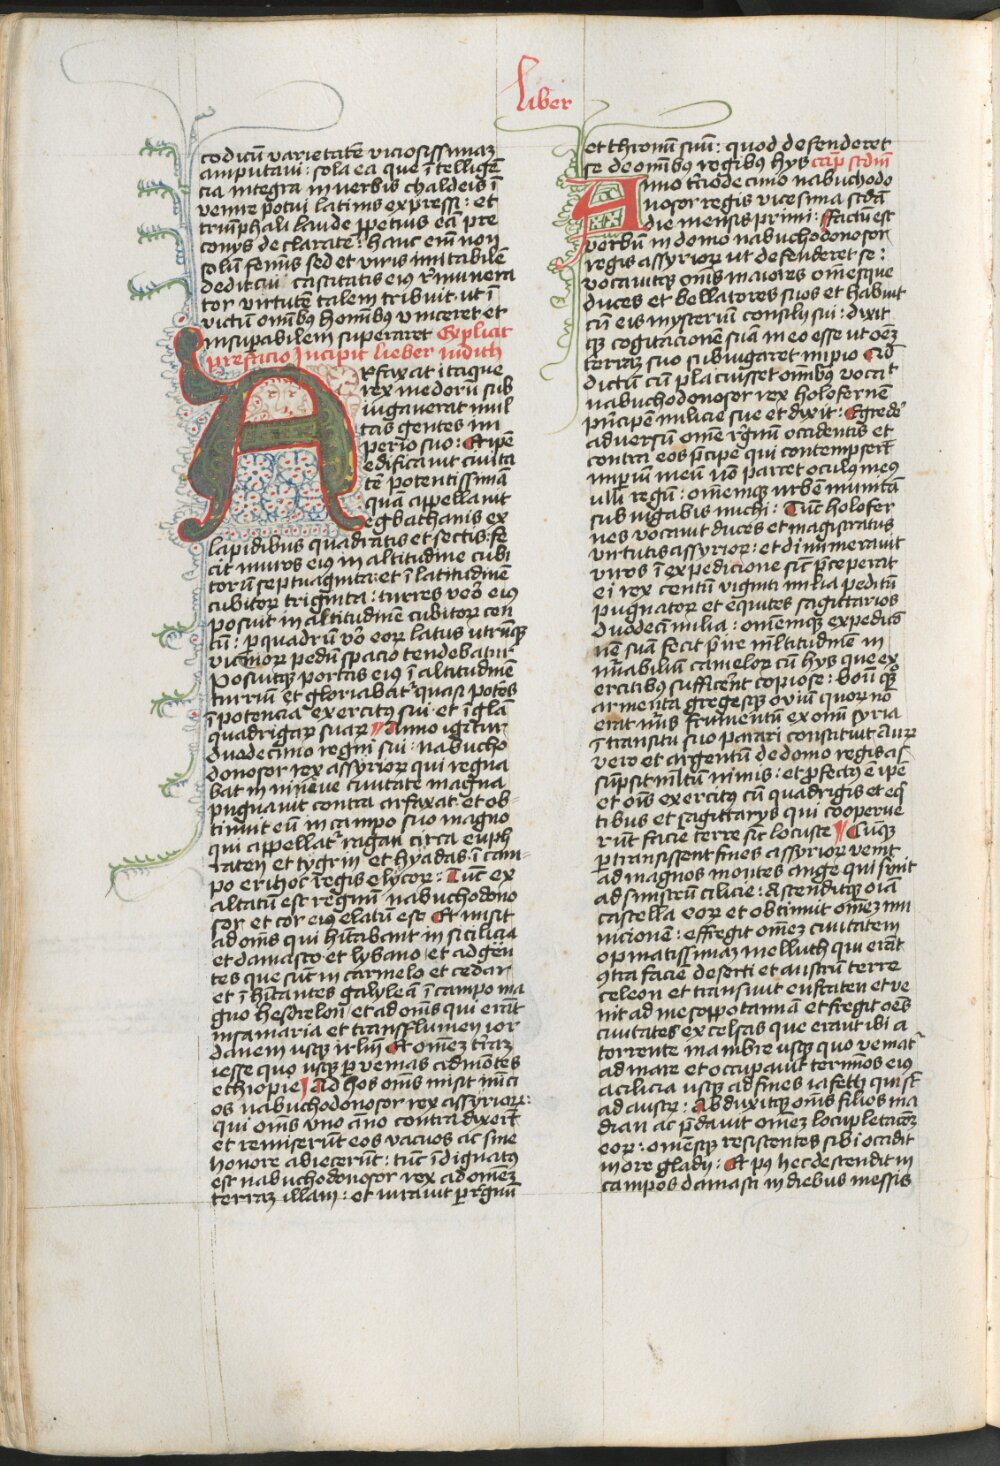 Liber
codicū varietatē viciosissimaz
amputavi: sola ea que ītelligē
cia integra in verbis chaldeis ī
venire potui latinis expressi: et
triūphali laude ꝑpetuis eā pre
conys declarate: hanc em̄ non
solū femīs sed et viris imitabilē
dedit qui castitatis eiꝰ r̄munera
tor virtutē talem tribuit ut ī
victū omībꝰ homībꝰ vinceret et
insuꝑabilem superaret Explicit
prefacio Incipit lieber iudith
Arfaxat itaque
rex medorū sub
iugaverat mul
tas gentes im
perio suo: Et ipē
edificavit civita
tē potentissimā
quā appellavit
egbathanis ex
lapidibus quadratis et sectis: fe
cit muros eiꝰ in altitudine cubi
torū septuaginta: et ī latitudinē
cubitorꝝ triginta: turres v̄o eiꝰ
posuit in altitudinē cubitorꝝ cen
tū: ꝑ quadrū v̄o eorꝝ latus utrūqꝫ
vicenorꝝ pedū spacio tendebatur
Posuitqꝫ portas eiꝰ ī altitudinē
turriū et gloriabat̉ quasi potēs
ī potencia exercitꝰ sui et ī glā
quadrigarꝝ suarꝝ Anno igitur
duodecimo regni sui: nabucho
donosor rex assyriorꝝ qui regna
bat in nineve civitate magna
pugnavit contra arfaxat et ob-
tinuit eū in campo suo magno
qui appellat̉ ragau circa euph
raten et tygrin et hyadas ī cam-
po erioch regis elycorꝝ: Tūc ex
altatū est regnū nabuchodono
sor et cor eiꝰ elatū est Et misit
ad om̄s qui hītabant in sicilicia
et damasco et lybano et ad gen
tes que sūt in carmelo et cedar
et ī hītantes galyleā ī campo ma
gno hesdrelon et ad om̄s qui erāt
in samaria et trans flumen ior
danem usqꝫ irlm̄ Et om̄ez t̄raz
iesse quo usqꝫ ꝑvenias ad mōtes
ethiopie Ad hos om̄s misit nūci
os nabuchodonosor rex assyriorꝝ:
qui om̄s uno aīo contradixerūt
et remiserūt eos vacuos ac sine
honore abiecerūt: tūc īdignatꝰ
est nabuchodonosor rex ad omēz
terraz illam: et iuravit ꝑ r̄gnū
et thronū suū: quod defenderet
se de omībꝰ regibꝰ hys caꝑ scdm̄
Anno t̄ciodecimo nabuchodo
nosor regis vicesima scdā
die mensis primi: factū est
verbū in domo nabuchodonosor
regis assyriorꝝ ut defenderet se:
vocavitqꝫ om̄s maiores om̄esque
duces et bellatores suos et habuit
cū eis mysteriū consilij sui: dixit
qꝫ cogitacionē suā in eo esse ut oēz
terraz suo subiugaret impio Qd
dictū cū placuisset omībꝰ vocat
nabuchodonosor rex holofernē
pncipē milicie sue et dixit: Egrede
adversū omē r̄gnū occidentis et
contra eos p̄cipe qui contempserūt
imperiū meū nō parcet oculꝰ meꝰ
ulli regno: omēmqꝫ urbē munitā
subiugabis michi: Tūc holofer
nes vocavit duces et magistratus
virtutis assyriorꝝ: et dinumeravit
viros ī expedicione sic̄ p̄ceperat
ei rex centū viginti milia peditū
pugnatorꝝ et equites sagittarios
duodecī milia: omēmqꝫ expedicō
nē suā fecit p̄ire m̄ltitudinē in
nūabiliū camelorꝝ cū hys que ex
ercitibꝰ sufficerēt copiose: boūqꝫ
armenta gregesqꝫ oviū quorꝝ nō
erat nūs frumentū ex omī syria
ī transitu suo parari constituit Aurꝝ
vero et argentū de domo regis as
sūpsit m̄ltū nimis: et ꝓfectꝰ ē ipē
et om̄s exercitꝰ cū quadrigis et eq̄
tibus et sagittarys qui cooperue
rūt faciē terre sic̄ locuste Cūqꝫ
ꝑtransissent fines assyriorꝝ venit
ad magnos montes ange qui sunt
ad sinistrū cilicie: Ascenditqꝫ oīa
castella eorꝝ et obtinuit omēz mu
nicionē: effregit omēz civitatem
opinatissimaz melluth qui erāt
ꝯtra faciē deserti et austrū terre
celeon et transivit eufraten et ve
nit ad mesopotamiā et fregit oēs
civitates excelsas que erant ibi a
torrente mambre usqꝫ quo veniat̉
ad mare et occupavit terminos eiꝰ
a cilicia usqꝫ ad fines iafeth qui st̄
ad austrꝝ: Abduxitqꝫ om̄s filios ma
dian ac p̄davit omēz locupletacōez
eorꝝ: omēsqꝫ resistentes sibi occidit
in ore gladij: Et pꝰ hec descendit in
campos damasci in diebus messis